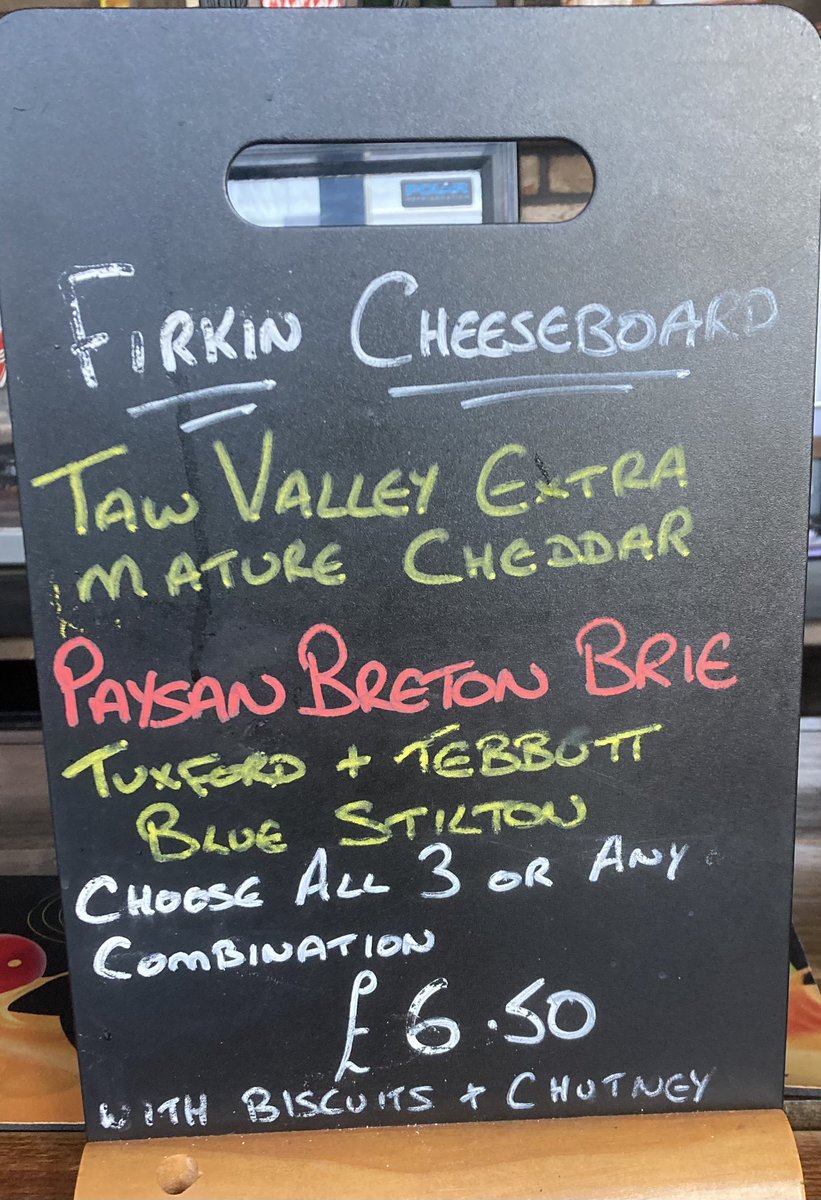 POLAR
REFRIGERATION
FIRKIN CHEESEBOARD
TAW VALLEY EXTRA
MATURE CHEDDAR
PAYSAN BRETON BRIE
TUXFORD + TEBBUTT
BLUE STILTON
CHOOSE ALL 3 OR ANY
COMBINATION
£6.50
WITH BISCUITS + CHUTNEY